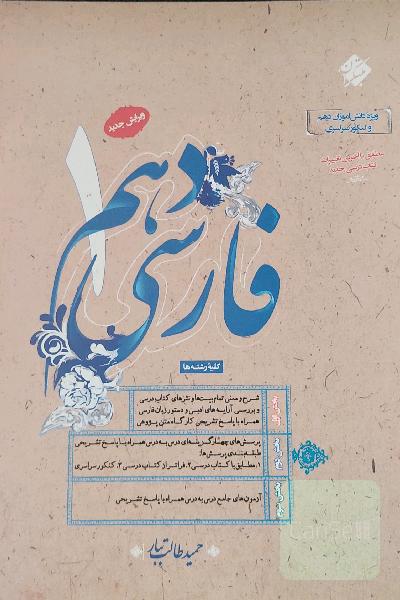 مبتکران
ویژه دانش‌آموزان دهم
و کنکور سراسری
مطابق با آخرین تغییرات
کتاب درسی جدید
ویرایش جدید
فارسی دهم
۱
کلیهٔ رشته‌ها
بخش اول
شرح و معنی تمام بیت‌ها و نثرهای کتاب درسی
و بررسی آرایه‌های ادبی و دستور زبان فارسی
همراه با پاسخ تشریحی کارگاه متن پژوهی
بخش دوم
پرسش‌های چهارگزینه‌ای درس به درس همراه با پاسخ تشریحی
طبقه‌بندی پرسش‌ها:
۱. مطابق با کتاب درسی ۲. فراتر از کتاب درسی ۳. کنکور سراسری
بخش سوم
آزمون‌های جامع درس به درس همراه با پاسخ تشریحی
حمید طالب تبار